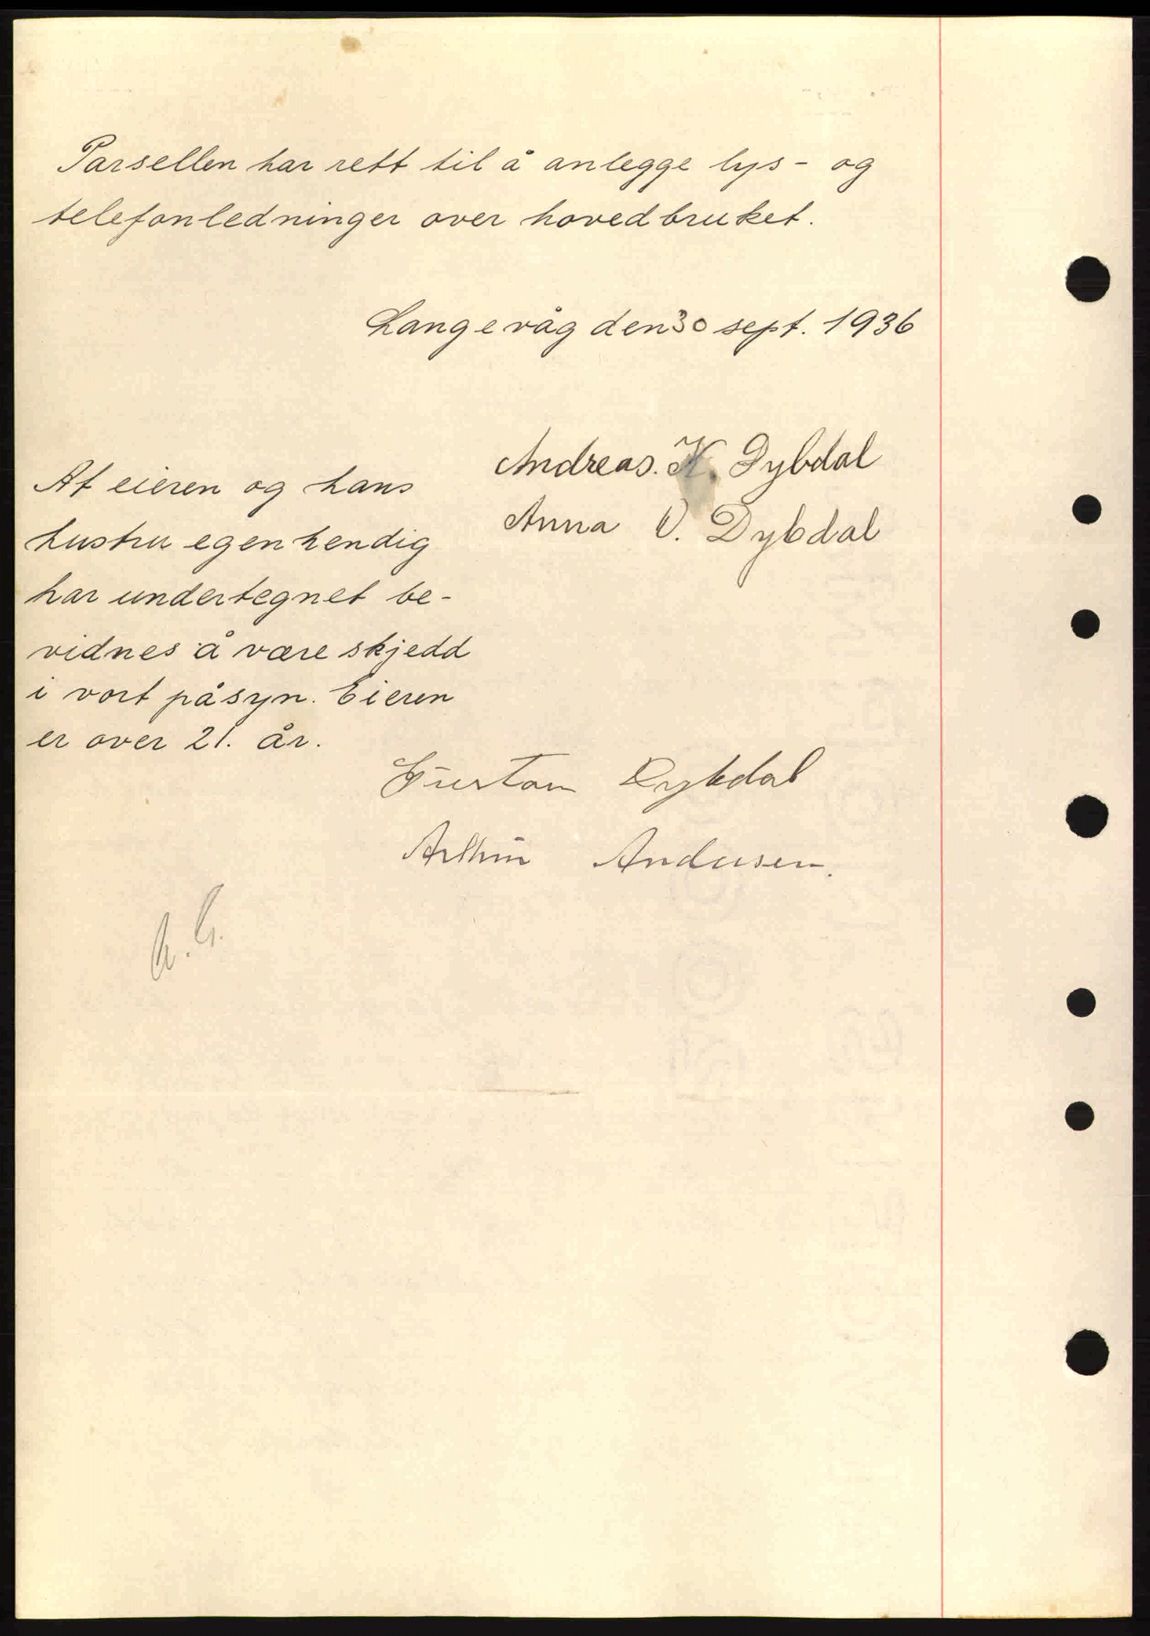 Parsellen har rett til å anlegge lys- og
telefonledninger over hovedbruket.
Langevåg den 30 sept. 1936
Andreas. K. Dybdal
Anna O. Dybdal
At eieren og hans
hustru egenhendig
har undertegnet be-
vidnes å være skjedd
i vort påsyn. Eieren
er over 21. år.
Gustav Dybdal
Arthur Andersen.